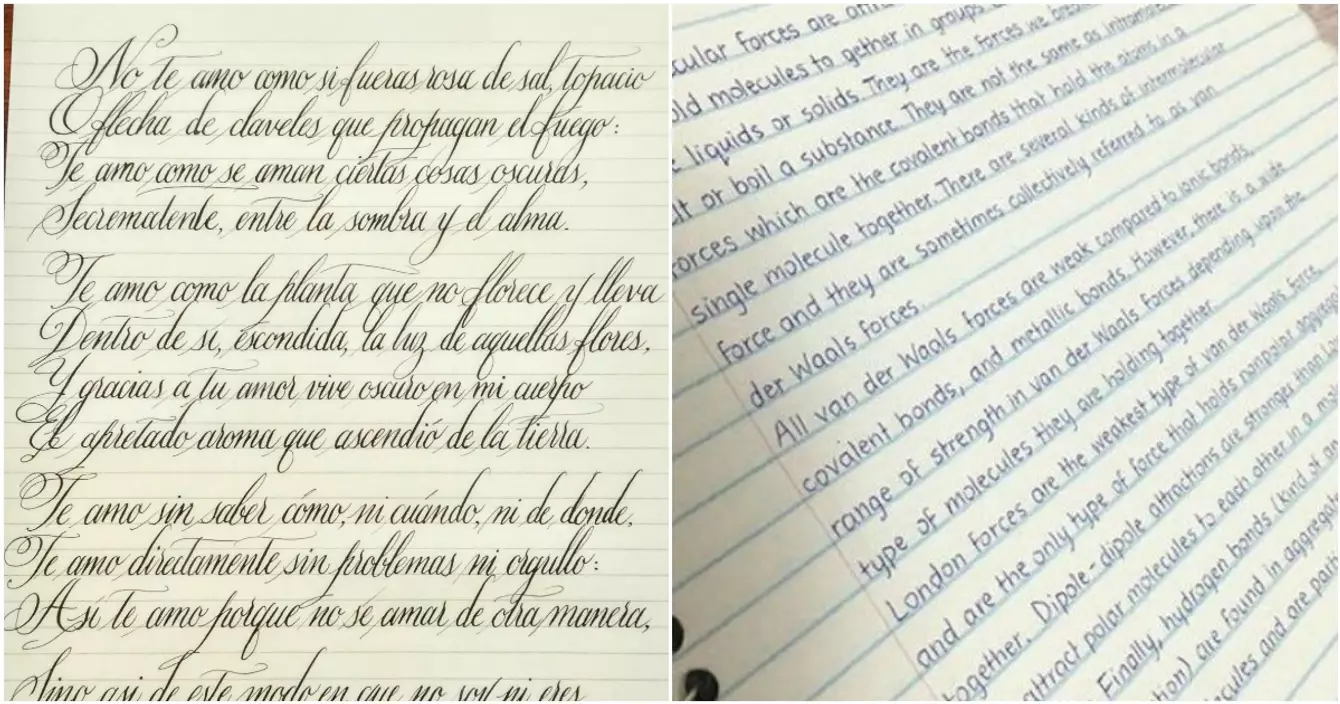 No te amo como si fueras rosa de sal, topacio
O flecha de claveles que propagan el fuego:
Te amo como se aman ciertas cosas oscuras,
Secrematente, entre la sombra y el alma.
Te amo como la planta que no florece y lleva
Dentro de si, escondida, la luz de aquellas flores,
Y gracias a tu amor vive oscuro en mi cuerpo
El apretado aroma que ascendió de la tierra.
Te amo sin saber cómo, ni cuándo, ni de donde,
Te amo directamente sin problemas ni orgullo:
Así te amo porque no se amar de otra manera,
Sino asi de este modo en que no soy ni eres
cular forces are
old molecules to gether in groups
liquids or solids. They are the forces we break
lt or boil a substance. They are not the same as intramolec
forces which are the covalent bonds that hold the atoms in a
single molecule together. There are several kinds of intermolecular
force and they are sometimes collectively referred to as van
der Waals forces
All van der Waals forces are weak compared to ionic bonds,
covalent bonds, and metallic bonds. However, there is a wide
range of strength in van der Waals forces depending upon the
type of molecules they are holding together
London forces are the weakest type of van der Waals force,
and are the only type of force that holds nonpolar aggrega
together. Dipole-dipole attractions are stronger than
attract polar molecules to each other in a
Finally, hydrogen bonds (kind of
tion) are found in aggrega
cules and are